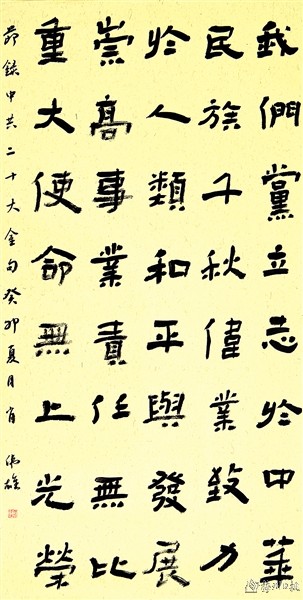 我們黨立志於中華
民族千秋偉業致力
於人類和平與發展
崇高事業責任無比
重大使命無上光榮
節錄中共二十大金句癸卯夏月肖偉雄
梅州日报